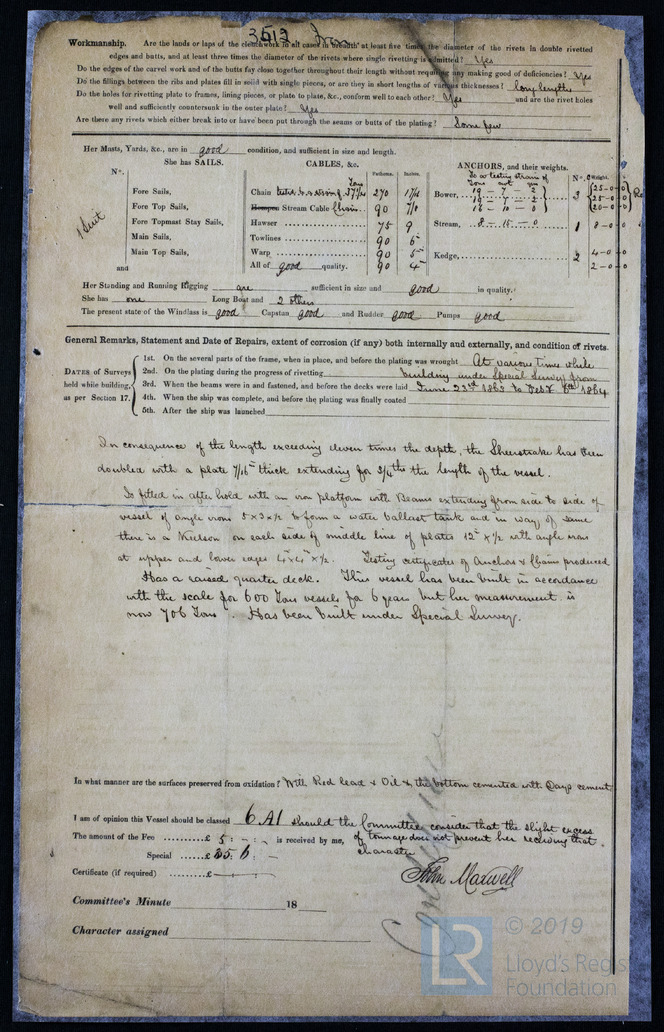 3512 Iron
Workmanship. Are the lands or laps of the clenchwork in all cases in breadth at least five times the diameter of the rivets in double rivetted
edges and butts, and at least three times the diameter of the rivets where single rivetting is admitted? Yes
Do the edges of the carvel work and of the butts fay close together throughout their length without requiring any making good of deficiencies? Yes
Do the fillings between the ribs and plates fill in solid with single pieces, or are they in short lengths of various thicknesses? long lengths
Do the holes for rivetting plate to frames, lining pieces, or plate to plate, &c., conform well to each other? Yes and are the rivet holes
well and sufficiently countersunk in the outer plate? Yes
Are there any rivets which either break into or have been put through the seams or butts of the plating? Some few
Her Masts, Yards, &c., are in good condition, and sufficient in size and length.
She has SAILS. CABLES, &c. ANCHORS, and their weights.
N°. Fathoms. Inches. N°. Weight.
Fore Sails, Chain 270 1 7/16 Bower, 3
Fore Top Sails, Stream Cable Chain 90 7/8
Fore Topmast Stay Sails, Hawser 75 9 Stream, 8 - 15 - 0 1 8 - 0 - 0
Main Sails, Towlines 90 6
Main Top Sails, Warp 90 5 Kedge, 2 4 - 0 - 0
and All of good quality. 90 4 2 - 0 - 0
1 Suit
Her Standing and Running Rigging are sufficient in size and good in quality.
She has one Long Boat and 2 others
The present state of the Windlass is good Capstan good and Rudder good Pumps good
General Remarks, Statement and Date of Repairs, extent of corrosion (if any) both internally and externally, and condition of rivets.
DATES of Surveys held while building, as per Section 17.
1st. On the several parts of the frame, when in place, and before the plating was wrought At various times while
2nd. On the plating during the progress of rivetting building under Special Survey from
3rd. When the beams were in and fastened, and before the decks were laid June 23rd 1863 to Feby 6th 1864
4th. When the ship was complete, and before the plating was finally coated
5th. After the ship was launched
In consequence of the length exceeding eleven times the depth, the Sheerstrake has been
doubled with a plate 7/16 thick extending for 3/4ths the length of the vessel.
Is fitted in after hold with an iron platform with Beams extending from side to side of
vessel of angle irons 5 x 3 x 1/2 to form a water ballast tank and in way of same
there is a Keelson on each side of middle line of plates 12 x 1/2 with angle iron
at upper and lower edges 4 x 4 x 1/2. Testing certificates of Anchors & Chains produced
Has a raised quarter deck. This vessel has been built in accordance
with the scale for 600 Tons vessels for 6 years but her measurement is
now 706 Tons. Has been built under Special Survey.
In what manner are the surfaces preserved from oxidation? With Red lead & Oil & the bottom cemented with Days cement
I am of opinion this Vessel should be classed 6 A1 should the Committee consider that the slight excess
The amount of the Fee £ 5 : - : - is received by me, of tonnage does not prevent her receiving that
Special £ 35 : 6 : - character
Certificate (if required) £
John Maxwell
Committee's Minute 18
Character assigned
LR © 2019
Lloyd's Regis
Foundation